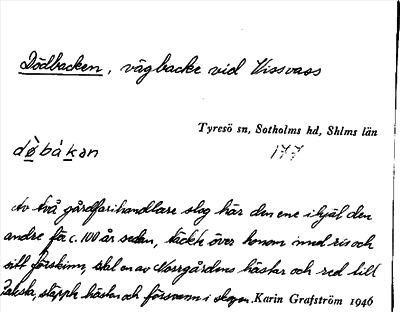 Dödbacken, vägbacke vid Vissvass
Tyresö sn, Sotholms hd, Shlms län
177
dø̀bàkən
Av två gårdfarihandlare slog här den ene ihjäl den
andre för c. 100 år sedan, täckte över honom med ris och
sitt förskinn, stal en av Norrgårdens hästar och red till
släppte hästen och försvann i skogen. Karin Grafström 1946